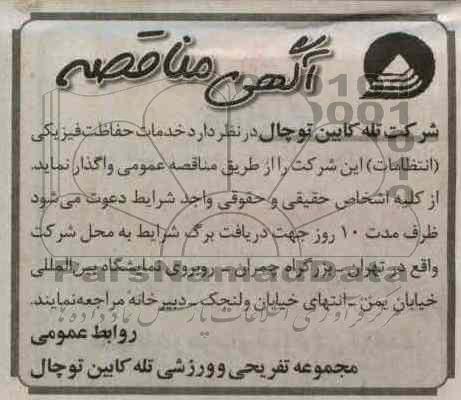 آگهی مناقصه
شرکت تله کابین توچال در نظر دارد خدمات حفاظت فیزیکی
(انتظامات) این شرکت را از طریق مناقصه عمومی واگذار نماید.
از کلیه اشخاص حقیقی و حقوقی واجد شرایط دعوت می شود
ظرف مدت ۱۰ روز جهت دریافت برگ شرایط به محل شرکت
واقع در تهران - بزرگراه چمران - روبروی نمایشگاه بین المللی
خیابان یمن - انتهای خیابان ولنجک - دبیرخانه مراجعه نمایند.
روابط عمومی
مجموعه تفریحی و ورزشی تله کابین توچال
ParsNamadData